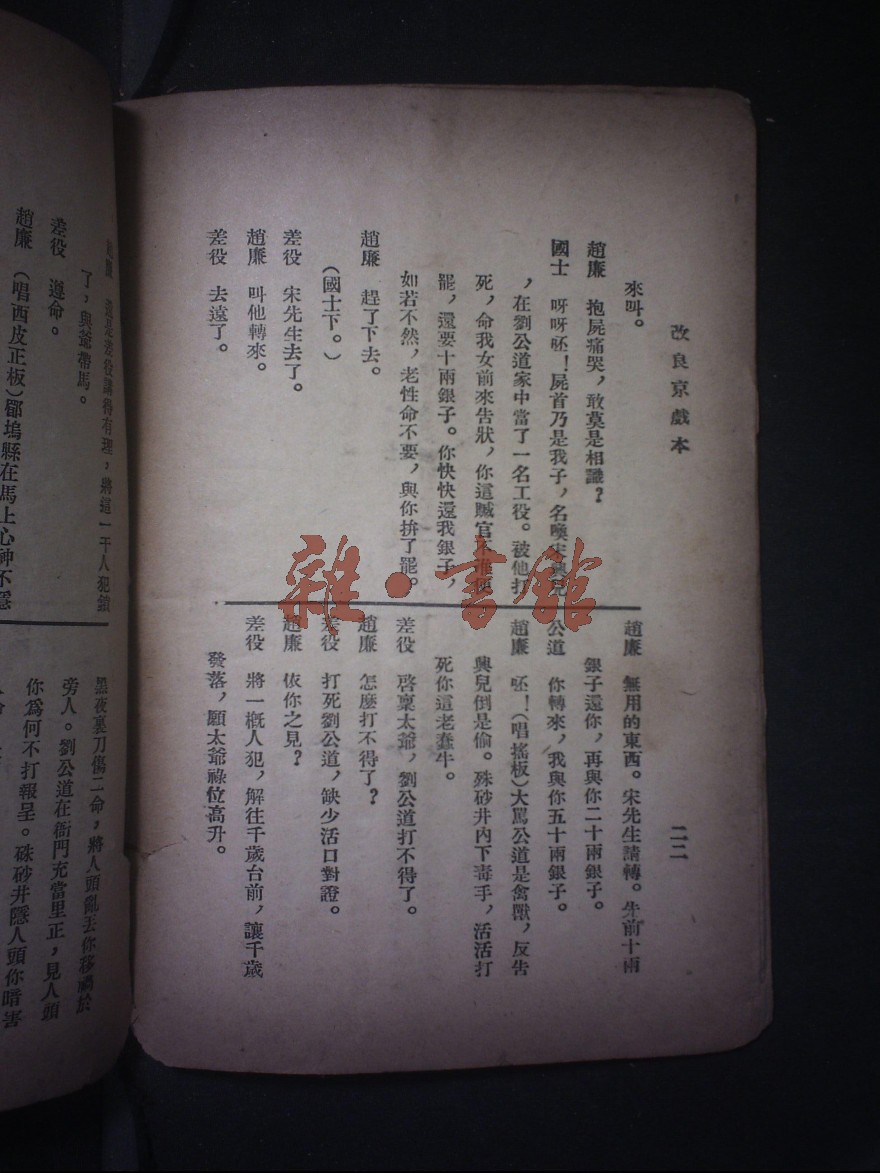 改良京戲本
二二
來叫。
趙廉 抱屍痛哭，敢莫是相識？
國士 呀呀呸！屍首乃是我子，名喚宋興兒
，在劉公道家中當了一名工役。被他打
死，命我女前來告狀，你這贓官不准便
罷，還要十兩銀子。你快快還我銀子，
如若不然，老性命不要，與你拚了罷。
趙廉 趕了下去。
（國士下。）
差役 宋先生去了。
趙廉 叫他轉來。
差役 去遠了。
趙廉 無用的東西。宋先生請轉。先前十兩
銀子還你，再與你二十兩銀子。
公道 你轉來，我與你五十兩銀子。
趙廉 呸！（唱搖板）大罵公道是禽獸，反告
興兒倒是偷。硃砂井內下毒手，活活打
死你這老蠢牛。
差役 啓稟太爺，劉公道打不得了。
趙廉 怎麼打不得了？
差役 打死劉公道，缺少活口對證。
趙廉 依你之見？
差役 將一概人犯，解往千歲台前，讓千歲
發落，願太爺祿位高升。
差役講得有理，將這一干人犯鎖
了，與爺帶馬。
差役 遵命。
趙廉 （唱西皮正板）郿塢縣在馬上心神不隱
黑夜裏刀傷二命，將人頭亂丟你移禍於
旁人。劉公道在衙門充當里正，見人頭
你爲何不打報呈。硃砂井隱人頭你暗害
雜·書館